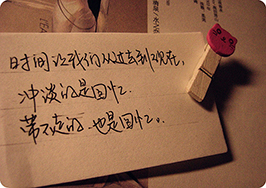 时间让我们从过去到现在,
冲淡的是回忆.
带不走的 也是回忆。